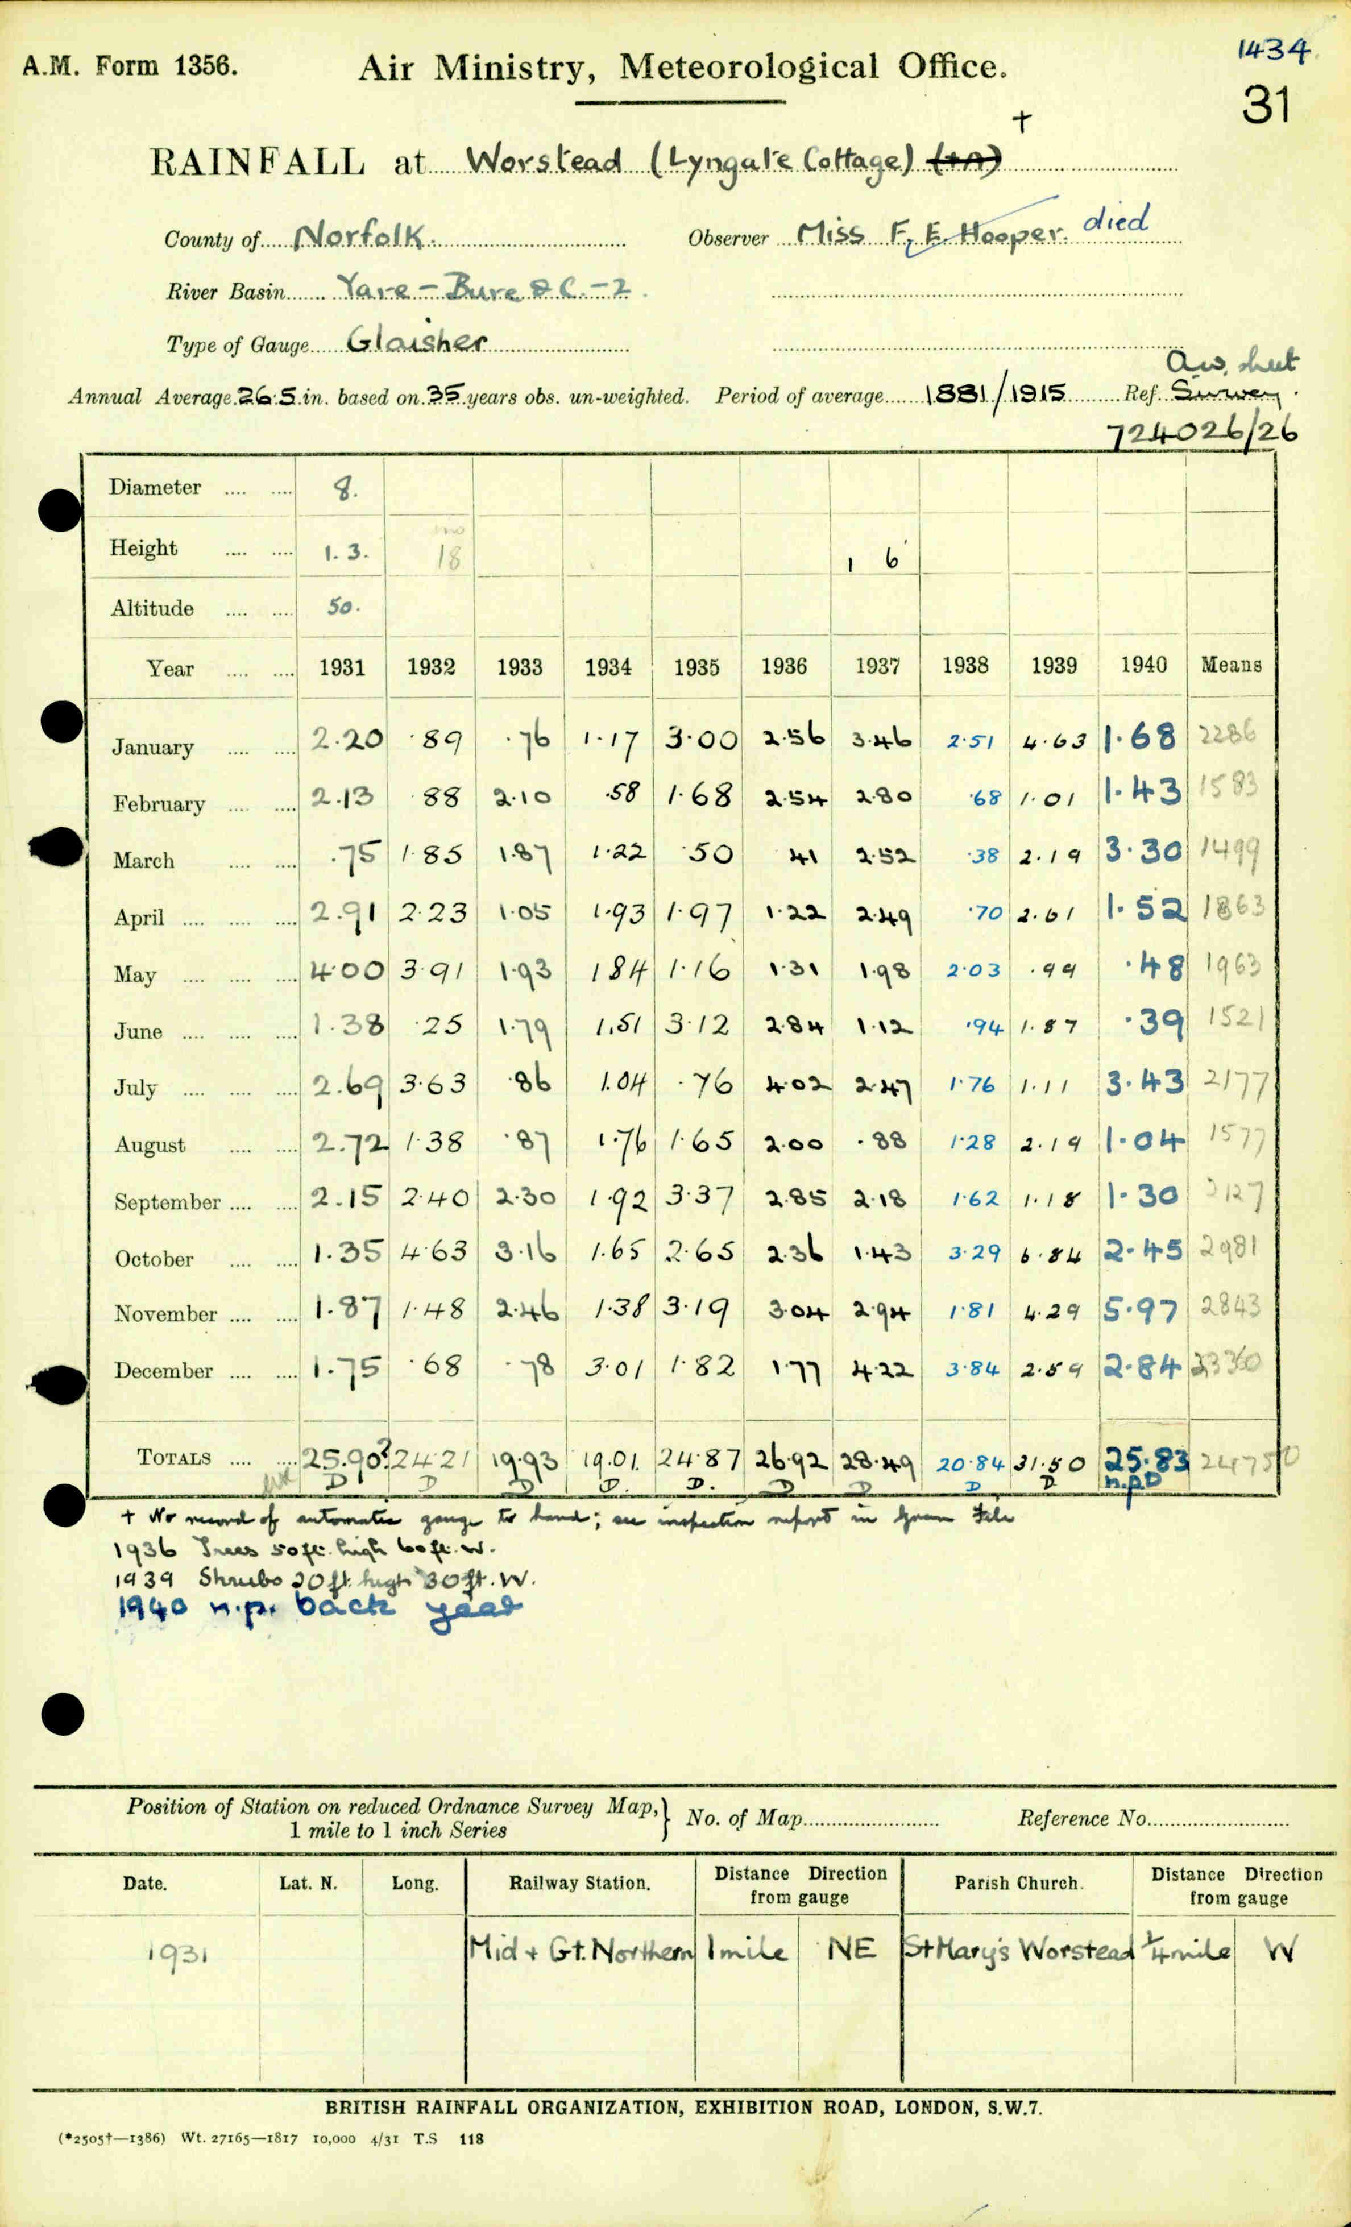 1434
A.M. Form 1356. Air Ministry, Meteorological Office.
31
RAINFALL at Worstead (Lyngate Cottage) †
County of Norfolk. Observer Miss F. E. Hooper. died
River Basin Yare - Bure &C. - 2
Type of Gauge Glaisher
Aw. sheet
Annual Average 26.5 in. based on 35 years obs. un-weighted. Period of average 1881/1915 Ref. Survey
724026/26
Diameter 8.
Height 1. 3. 18 1 6
Altitude 50.
Year 1931 1932 1933 1934 1935 1936 1937 1938 1939 1940 Means
January 2.20 .89 .76 1.17 3.00 2.56 3.46 2.51 4.63 1.68 2286
February 2.13 .88 2.10 .58 1.68 2.54 2.80 .68 1.01 1.43 1583
March .75 1.85 1.87 1.22 .50 41 2.52 .38 2.19 3.30 1499
April 2.91 2.23 1.05 1.93 1.97 1.22 2.49 .70 2.61 1.52 1863
May 4.00 3.91 1.93 1 84 1.16 1.31 1.98 2.03 .99 .48 1963
June 1.38 .25 1.79 1.51 3.12 2.84 1.12 .94 1.87 .39 1521
July 2.69 3.63 .86 1.04 .76 4.02 2.47 1.76 1.11 3.43 2177
August 2.72 1.38 .87 1.76 1.65 2.00 .88 1.28 2.19 1.04 1577
September 2.15 2.40 2.30 1.92 3.37 2.85 2.18 1.62 1.18 1.30 2127
October 1.35 4.63 3.16 1.65 2.65 2.36 1.43 3.29 6.84 2.45 2981
November 1.87 1.48 2.46 1.38 3.19 3.04 2.94 1.81 4.29 5.97 2843
December 1.75 .68 .78 3.01 1.82 1.77 4.22 3.84 2.59 2.84 2330
TOTALS 25.90? 24.21 19.93 19.01 24.87 26.92 28.49 20.84 31.50 25.83 24750
D D D D. D. D D D D n.p.D
† No record of automatic gauge to hand; see inspection report in Green File
1936 Trees 50ft. high 60ft. W.
1939 Shrubs 20ft. high 30ft. W.
1940 n.p. back year
Position of Station on reduced Ordnance Survey Map, 1 mile to 1 inch Series } No. of Map Reference No.
Date. Lat. N. Long. Railway Station. Distance Direction from gauge Parish Church. Distance Direction from gauge
1931 Mid & Gt. Northern 1 mile NE St Mary's Worstead 1/4 mile W
BRITISH RAINFALL ORGANIZATION, EXHIBITION ROAD, LONDON, S.W.7.
(*2505†—1386) Wt. 27165—1817 10,000 4/31 T.S 118